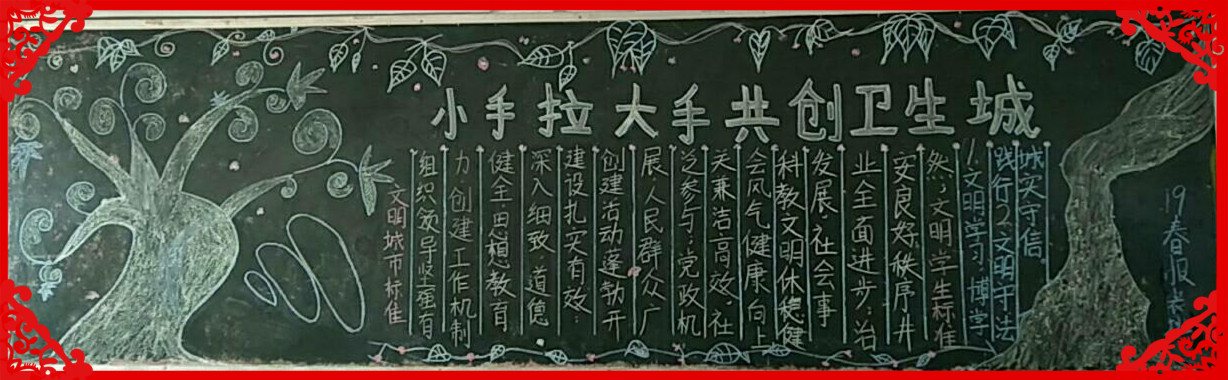 小手拉大手共创卫生城
文明城市标准
组织领导坚强有
力创建工作机制
健全思想教育
深入细致,道德
建设扎实有效;
创建活动蓬勃开
展,人民群众广
泛参与;党政机
关兼洁高效,社
会风气健康向上
科教文明休稳健
发展,社会事
业全面进步;治
安良好,秩序井
然,文明学生标准
1.文明学习、博学
践行2.文明守法
城实守信。
19春